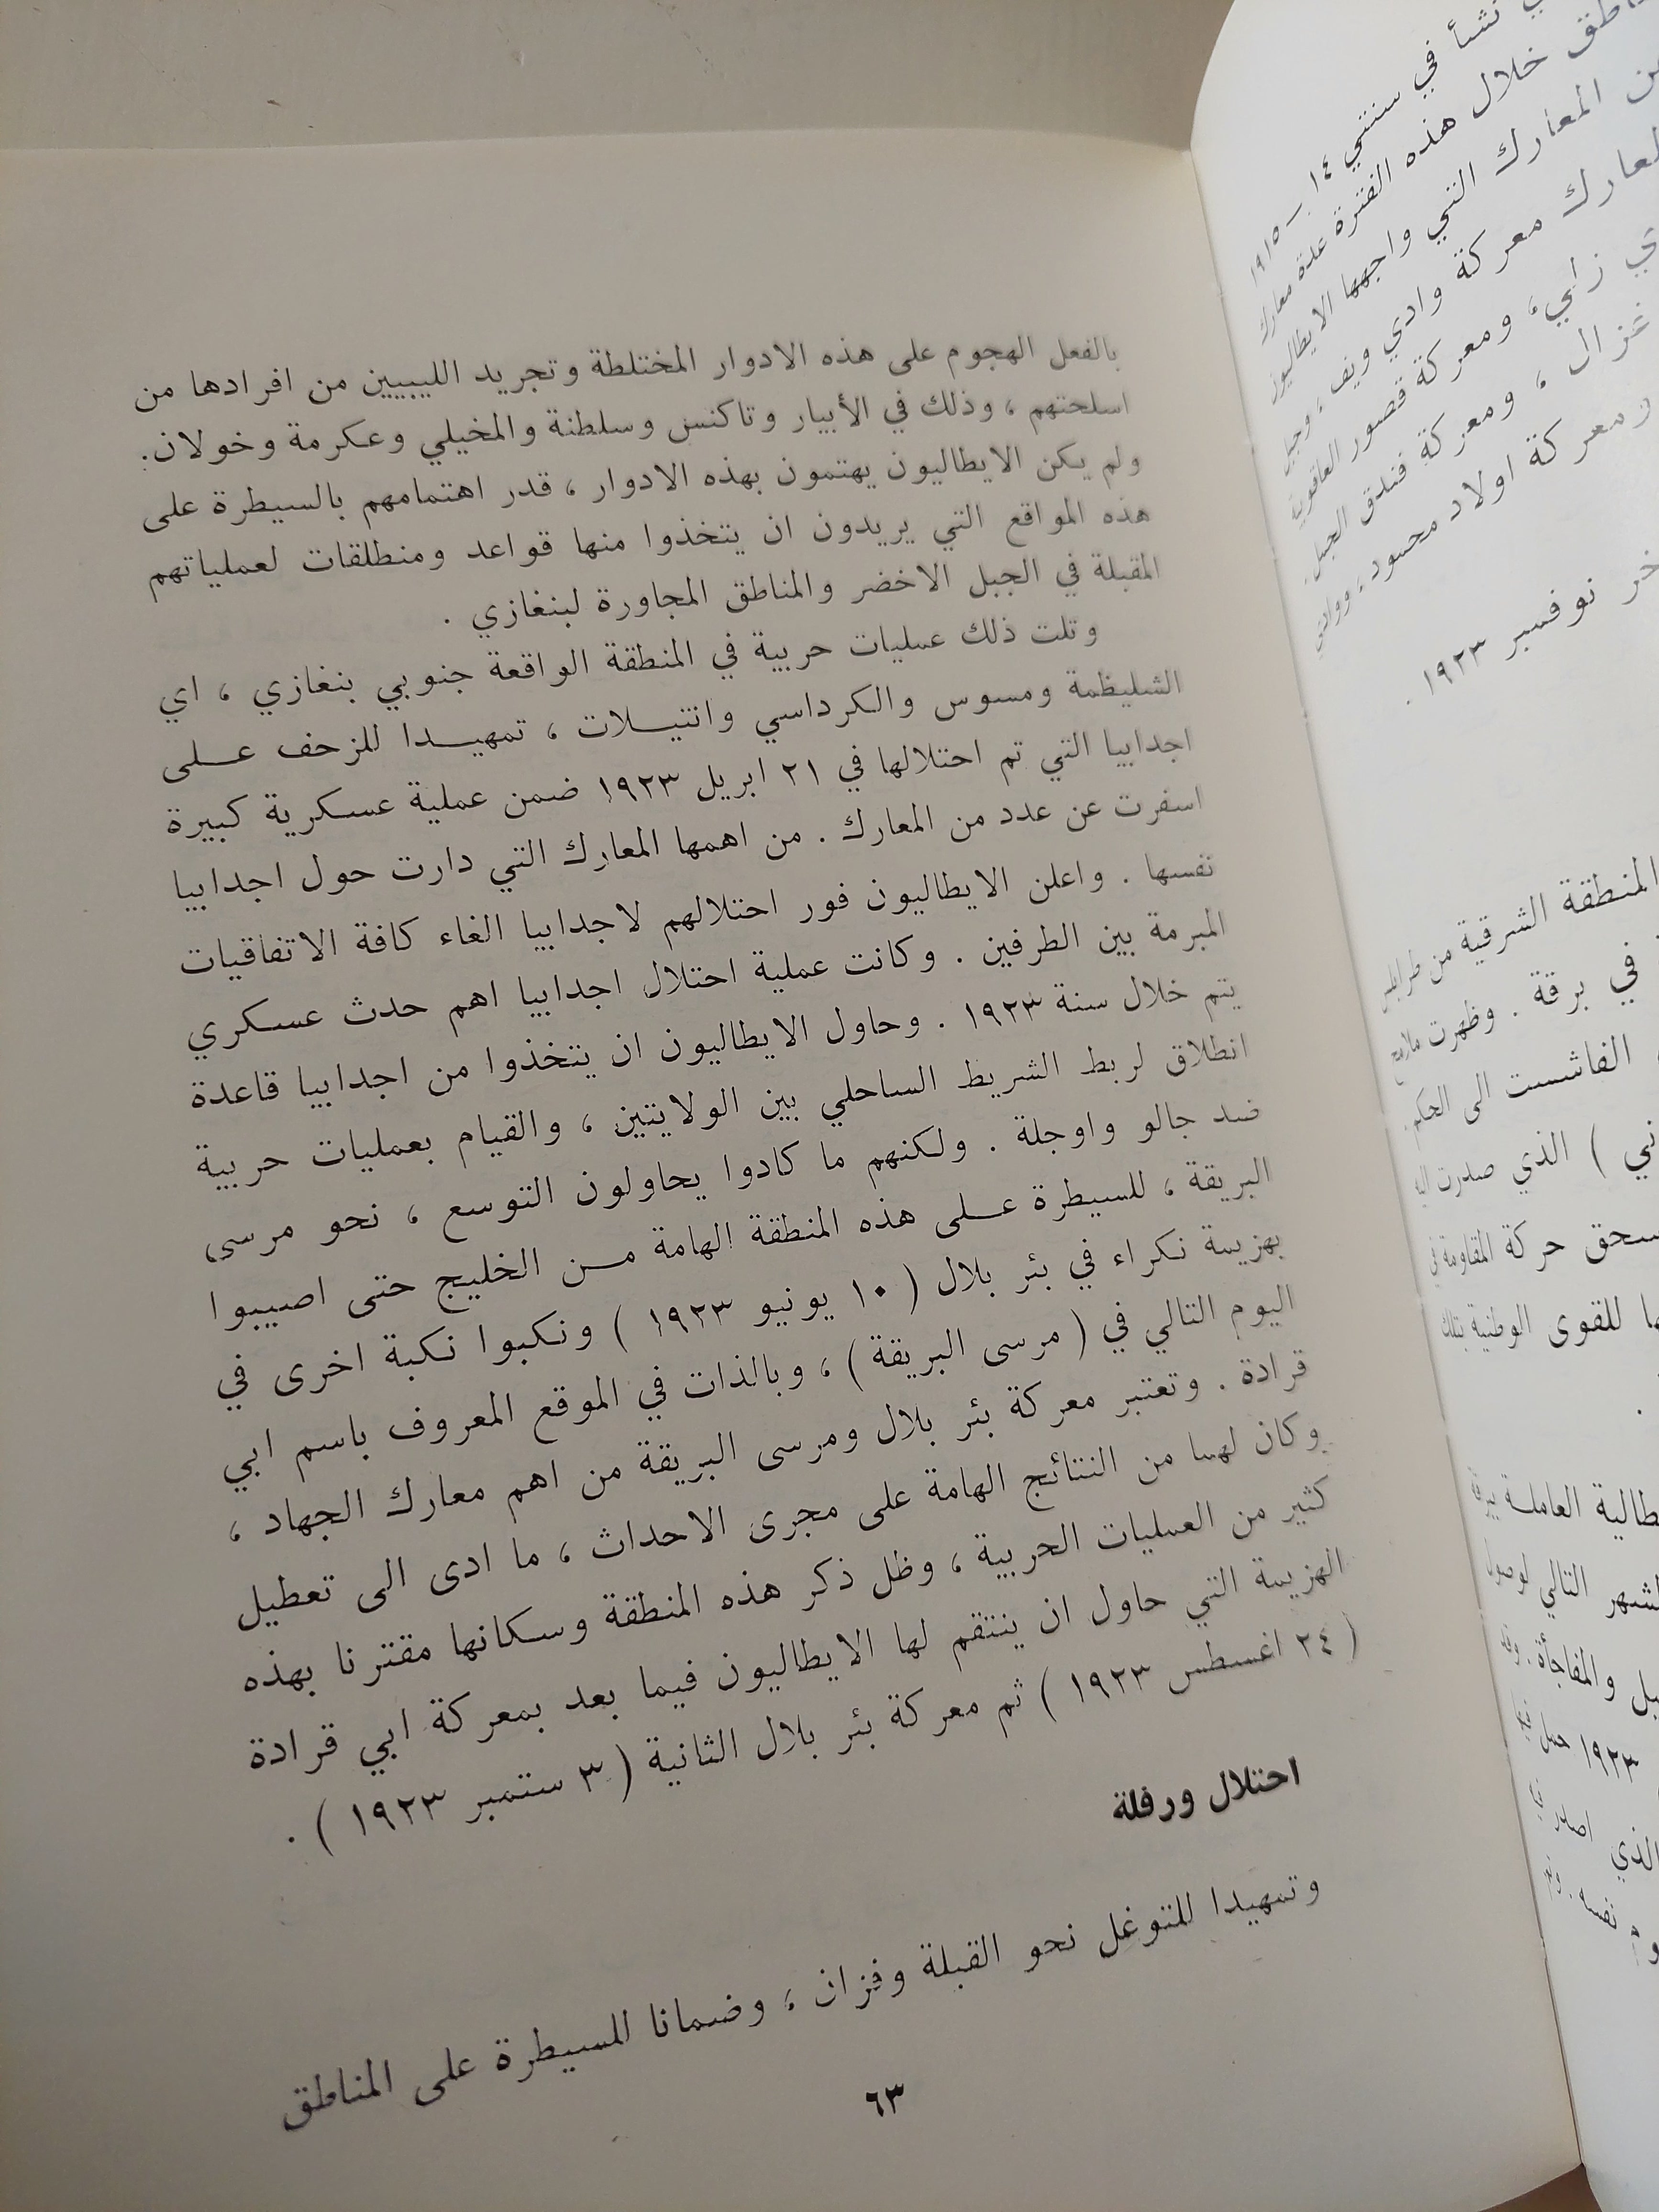 بالفعل الهجوم على هذه الادوار المختلطة وتجريد الليبيين من افرادها من
اسلحتهم ، وذلك في الأبيار وتاكنس وسلطنة والمخيلي وعكرمة وخولان.
ولم يكن الايطاليون يهتمون بهذه الادوار ، قدر اهتمامهم بالسيطرة على
هذه المواقع التي يريدون ان يتخذوا منها قواعد ومنطلقات لعملياتهم
المقبلة في الجبل الاخضر والمناطق المجاورة لبنغازي .
وتلت ذلك عمليات حربية في المنطقة الواقعة جنوبي بنغازي ، اي
الشليظمة ومسوس والكرداسي وانتيلات ، تمهيدا للزحف على
اجدابيا التي تم احتلالها في ٢١ ابريل ١٩٢٣ ضمن عملية عسكرية كبيرة
اسفرت عن عدد من المعارك . من اهمها المعارك التي دارت حول اجدابيا
نفسها . واعلن الايطاليون فور احتلالهم لاجدابيا الغاء كافة الاتفاقيات
المبرمة بين الطرفين . وكانت عملية احتلال اجدابيا اهم حدث عسكري
يتم خلال سنة ١٩٢٣ . وحاول الايطاليون ان يتخذوا من اجدابيا قاعدة
انطلاق لربط الشريط الساحلي بين الولايتين ، والقيام بعمليات حربية
ضد جالو واوجلة . ولكنهم ما كادوا يحاولون التوسع ، نحو مرسى
البريقة ، للسيطرة على هذه المنطقة الهامة من الخليج حتى اصيبوا
بهزيمة نكراء في بئر بلال ( ١٠ يونيو ١٩٢٣ ) ونكبوا نكبة اخرى في
اليوم التالي في ( مرسى البريقة ) ، وبالذات في الموقع المعروف باسم ابي
قرادة . وتعتبر معركة بئر بلال ومرسى البريقة من اهم معارك الجهاد ،
وكان لهما من النتائج الهامة على مجرى الاحداث ، ما ادى الى تعطيل
كثير من العمليات الحربية ، وظل ذكر هذه المنطقة وسكانها مقترنا بهذه
الهزيمة التي حاول ان ينتقم لها الايطاليون فيما بعد بمعركة ابي قرادة
( ٢٤ اغسطس ١٩٢٣ ) ثم معركة بئر بلال الثانية ( ٣ ستمبر ١٩٢٣ ) .
احتلال ورفلة
وتمهيدا للتوغل نحو القبلة وفزان ، وضمانا للسيطرة على المناطق
٦٣
نشأ في سنتي ١٤ - ١٩١٥
خلال هذه الفترة عدة معارك
المعارك التي واجهها الايطاليون
معركة وادي ويف ، وجبل
زابي، ومعركة قصور العاقورية
غزال ، ومعركة فندق الجمل
ومعركة اولاد محمود ،
نوفمبر ١٩٢٣ .
المنطقة الشرقية من طرابلس
في برقة . وظهرت ملامح
الفاشست الى الحكم
) الذي صدرت اليه
حركة المقاومة في
للقوى الوطنية بتلك
العاملة ببرقة
التالي لوصول
والمفاجأة . وقد
١٩٢٣
الذي اصدر
نفسه .